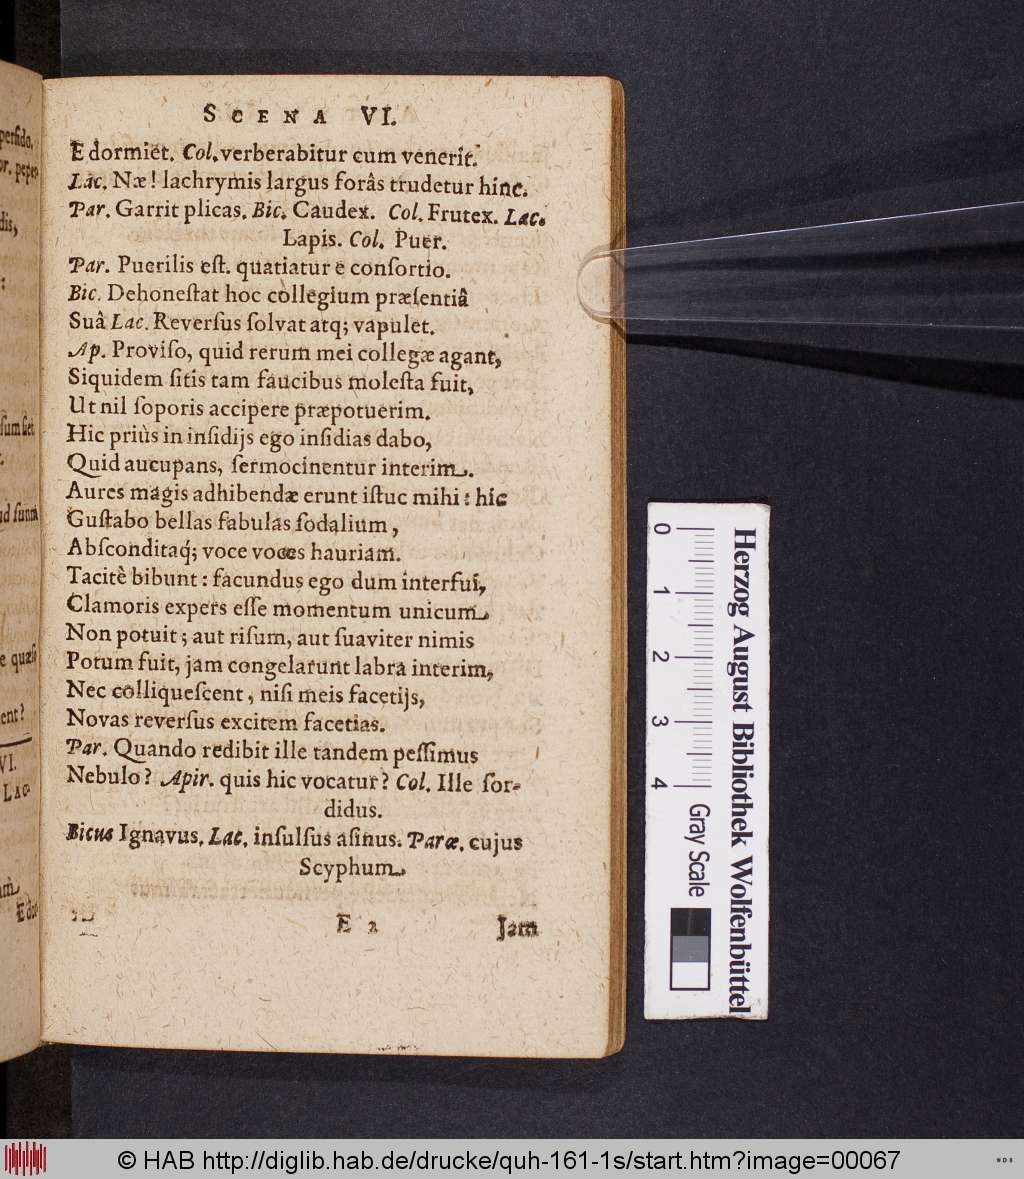 SCENA VI.
Edormiet. Col. verberabitur cum venerit.
Lac. Næ! lachrymis largus forâs trudetur hinc.
Par. Garrit plicas. Bic. Caudex. Col. Frutex. Lac.
Lapis. Col. Puer.
Par. Puerilis eſt. quatiatur è conſortio.
Bic. Dehoneſtat hoc collegium præſentiâ
Suâ Lac. Reverſus ſolvat atq; vapulet.
Ap. Proviſo, quid rerum mei collegæ agant,
Siquidem ſitis tam faucibus moleſta fuit,
Ut nil ſoporis accipere præpotuerim.
Hic priùs in inſidijs ego inſidias dabo,
Quid aucupans, ſermocinentur interim.
Aures magis adhibendæ erunt iſtuc mihi: hic
Guſtabo bellas fabulas ſodalium,
Abſconditaq́; voce voces hauriam.
Tacitè bibunt: facundus ego dum interfui,
Clamoris expers eſſe momentum unicum
Non potuit; aut riſum, aut ſuaviter nimis
Potum fuit, jam congelarunt labra interim,
Nec colliqueſcent, niſi meis facetijs,
Novas reverſus excitem facetias.
Par. Quando redibit ille tandem peſſimus
Nebulo? Apir. quis hic vocatur? Col. Ille ſor-
didus.
Bicus Ignavus. Lac. inſulſus aſinus. Paræ. cujus
Scyphum
E 2 Jam
perfido.
pepe
dis,
:
.
ſunt
e quæſ
ent?
VI.
LAC
Edor
0 1 2 3 4
Gray Scale
Herzog August Bibliothek Wolfenbüttel
© HAB http://diglib.hab.de/drucke/quh-161-1s/start.htm?image=00067